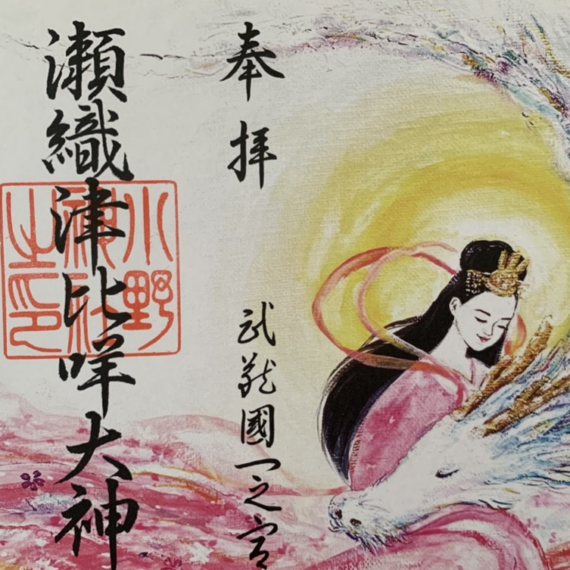 奉拝
武蔵國一之宮
瀨織津比咩大神
小野
之印